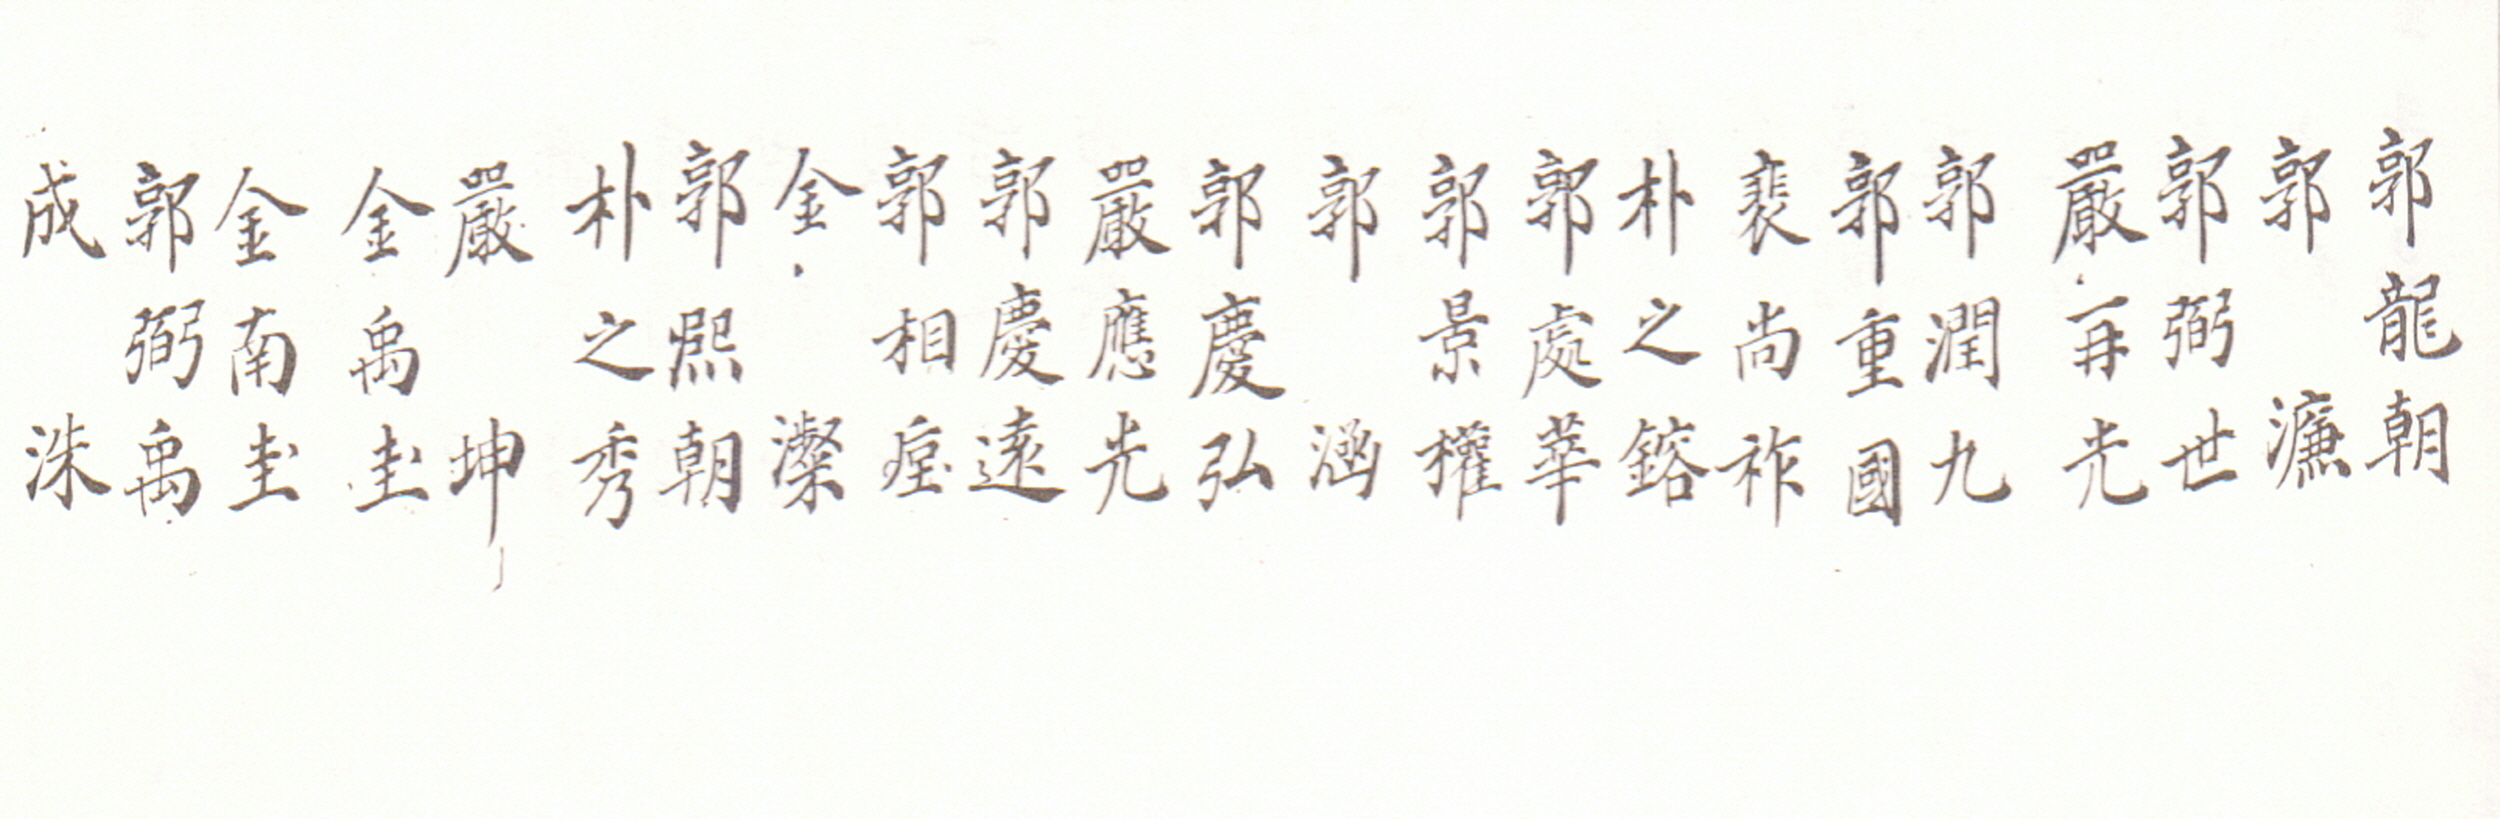 郭龍朝
郭濂
郭弼世
嚴再光
郭潤九
郭重國
裵尚祚
朴之鎔
郭處華
郭景權
郭涵
郭慶弘
嚴應光
郭慶遠
郭相
金潔
郭熙朝
朴之秀
嚴坤
金禹圭
金南圭
郭弼禹
成洙